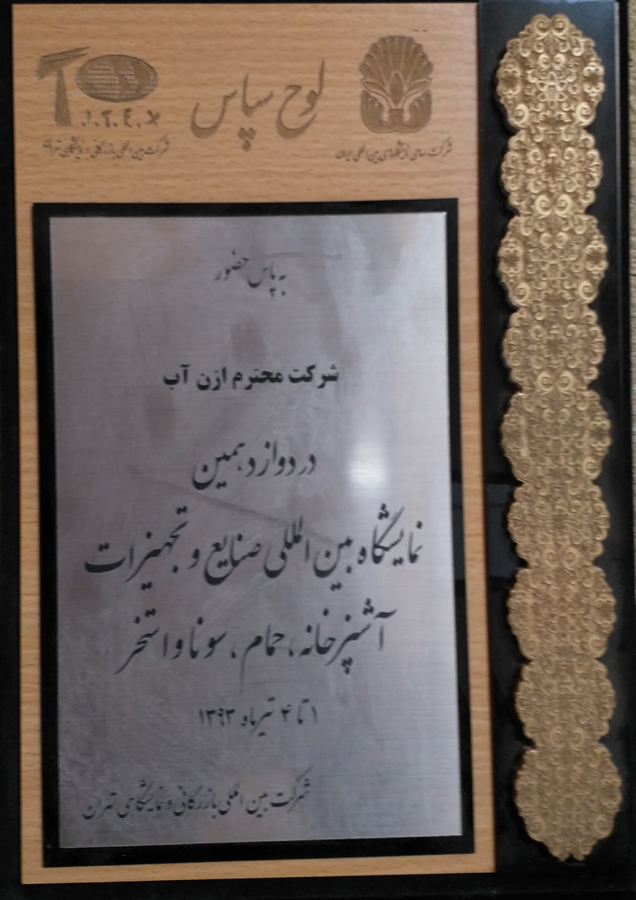 لوح سپاس
T.I.T.E.X
شرکت بین المللی بازرگانی و نمایشگاهی تهران
شرکت سهامی نمایشگاههای بین المللی ایران
به پاس حضور
شرکت محترم ازن آب
در دوازدهمین
نمایشگاه بین المللی صنایع و تجهیزات
آشپزخانه، حمام، سونا و استخر
۱ تا ۴ تیرماه ۱۳۹۳
شرکت بین المللی بازرگانی و نمایشگاهی تهران